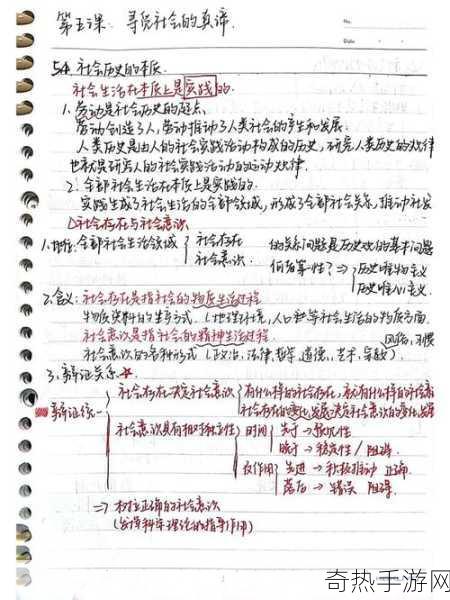 第五课 寻觅社会的真谛
No.
Date
5.1 社会历史的本质
社会生活在本质上是实践的
1. 劳动是社会历史的起点
劳动创造了人,劳动推动了人类社会的产生和发展
人类历史是由人的社会实践活动构成的历史,研究人类历史的规律
也就是研究人的社会实践活动的运动规律
2. 全部社会生活在本质上是实践的
实践生成了社会生活的全部领域,形成了全部社会关系,推动社会
①社会存在与社会意识
1. 地位: 全部社会生活领域 { 社会存在 社会意识 的关系问题是历史观的基本问题
何者第一性? ⇒ { 历史唯物主义 历史唯心主义
2. 含义: 社会存在是指社会的物质生活过程
物质资料的生产方式 (地理环境,人口等社会生活的物质方面
社会意识是指社会的精神生活过程 风俗,习惯
社会意识的各种形式 (政治,法律,哲学,道德,艺术,宗教)
3. 辩证关系 ☆
辩证统一
社会存在决定社会意识 { 有什么样的社会存在,就有什么样的社会意识
社会存在的变化发展决定社会意识的变化发展
社会意识具有相对独立性 { 时间 { 先于 → 预见性
晚于 → 稳定性 / 阻碍
反作用 { 先进 → 积极推动 正确
落后 → 错误 阻碍
⇒ 树立正确的社会意识
(发挥科学理论的指导作用)
奇热手游网